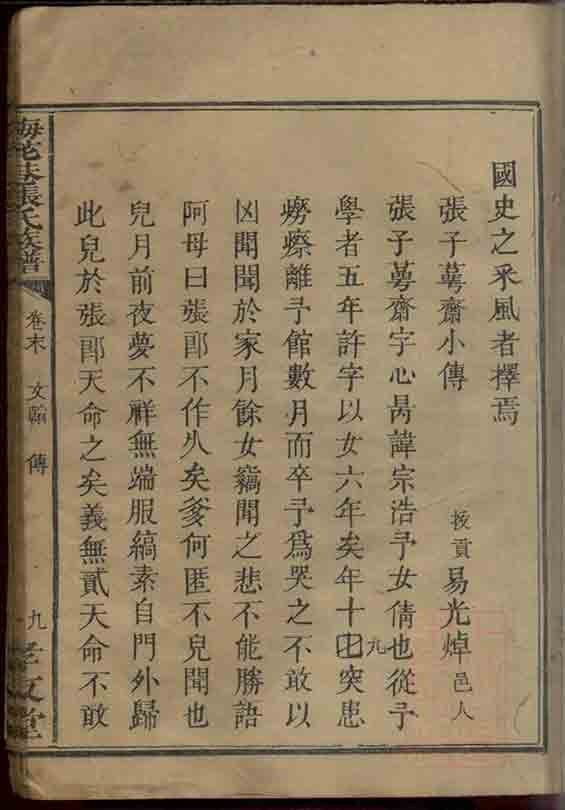 國史之采風者擇焉
張子蕚齋小傳 拔貢易光焯邑人
張子蕚齋字心諱宗浩予女倩也從予
學者五年許字以女六年矣年十七九突患
癆瘵離予館數月而卒予為哭之不敢以
凶聞聞於家月餘女竊聞之悲不能勝語
阿母曰張郎不作久矣爹何匿不兒聞也
兒月前夜夢不祥無端服縞素自門外歸
此兒於張郎天命之矣義無貳天命不敢
張氏族譜 卷末 文翰 傳 九 孝友堂